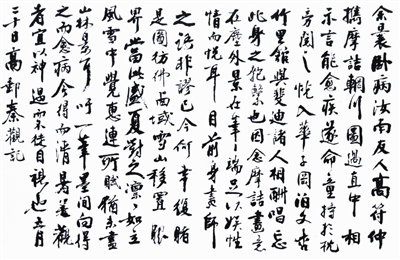 余曩卧病汝南友人高符仲
攜摩詰輞川圖過直中相
示言能愈疾遂命童持於枕
旁閱之恍入華子岡泊文杏
竹里館與斐迪諸人相酬唱忘
此身之匏繫也因念摩詰畫意
在塵外景在筆端足以娛性
情而悅耳目前身畫師
之語非謬已今何幸復睹
是圖彷彿西域雪山移置眼
界當此盛夏對之凜凜如立
風雪中覺惠連所賦猶未盡
山林景耳吁一筆墨間向得
之而愈病今得而清暑善觀
者宜以神遇而不徒目視也五月
二十日高郵秦觀記